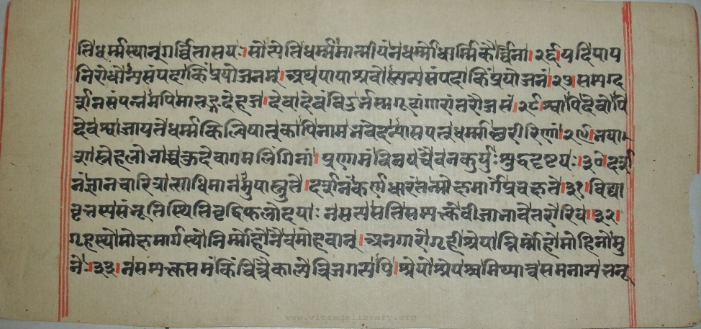 ति धर्म्मस्थान् गर्विताशयः। सोत्येति धर्म्ममात्मीयं न धर्म्मो धार्म्मिकैर्विना। २६। यदि पाप
निरोधोन्यसंपदा किं प्रयोजनम्। अथ पापाश्रवोस्त्यन्यसंपदा किं प्रयोजनं। २७। सम्यग्द
र्शनसंपन्नमपि मातङ्गदेहजं। देवा देवं विदुर्भस्मगूढांगारांतरौजसं। २८। श्वापि देवोपि
देवः श्वा जायते धर्म्मकिल्विषात् कापि नाम भवेदन्या संपद्धर्म्माच्छरीरिणां। २९। भया
शास्नेहलोभाच्च कुदेवागमलिंगिनां। प्रणामं विनयं चैव न कुर्युः शुद्धदृष्टयः। ३०। दर्श
नं ज्ञानचारित्रात्साधिमानमुपाश्नुते। दर्शनं कर्णधारं तन्मोक्षमार्गे प्रचक्षते। ३१। विद्या
वृत्तस्य संभूतिस्थितिवृद्धिफलोदयाः न सन्त्यसति सम्यक्त्वे बीजाभावे तरोरिव। ३२।
गृहस्थो मोक्षमार्गस्थो निर्म्मोहो नैव मोहवान्। अनगारो गृही श्रेयान्निर्म्मोहो मोहिनो मु
नेः। ३३। न सम्यक्त्वसमं किंचित्त्रैकाल्ये त्रिजगत्यपि। श्रेयोश्रेयश्च मिथ्यात्वसमं नान्यत्तनू